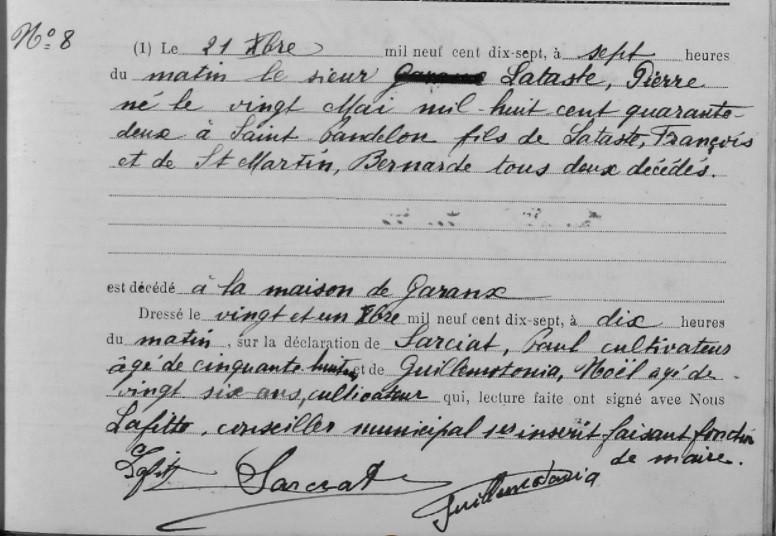 N° 8
(1) Le 21 Xbre mil neuf cent dix-sept, à sept heures
du matin le sieur Lataste, Pierre
né le vingt Mai mil huit cent quarante-
deux à Saint Pandelon fils de Lataste, François
et de St Martin, Bernarde tous deux décédés.
est décédé à la maison de Garanx
Dressé le vingt et un Xbre mil neuf cent dix-sept, à dix heures
du matin, sur la déclaration de Sarciat, Paul cultivateur
âgé de cinquante huit et de Guillemotonia, Noël agé de
vingt six ans, cultivateur qui, lecture faite ont signé avec Nous
Lafitte, conseiller municipal 1er inscrit faisant fonction
de maire.
Lafitte Sarciat Guillemotonia